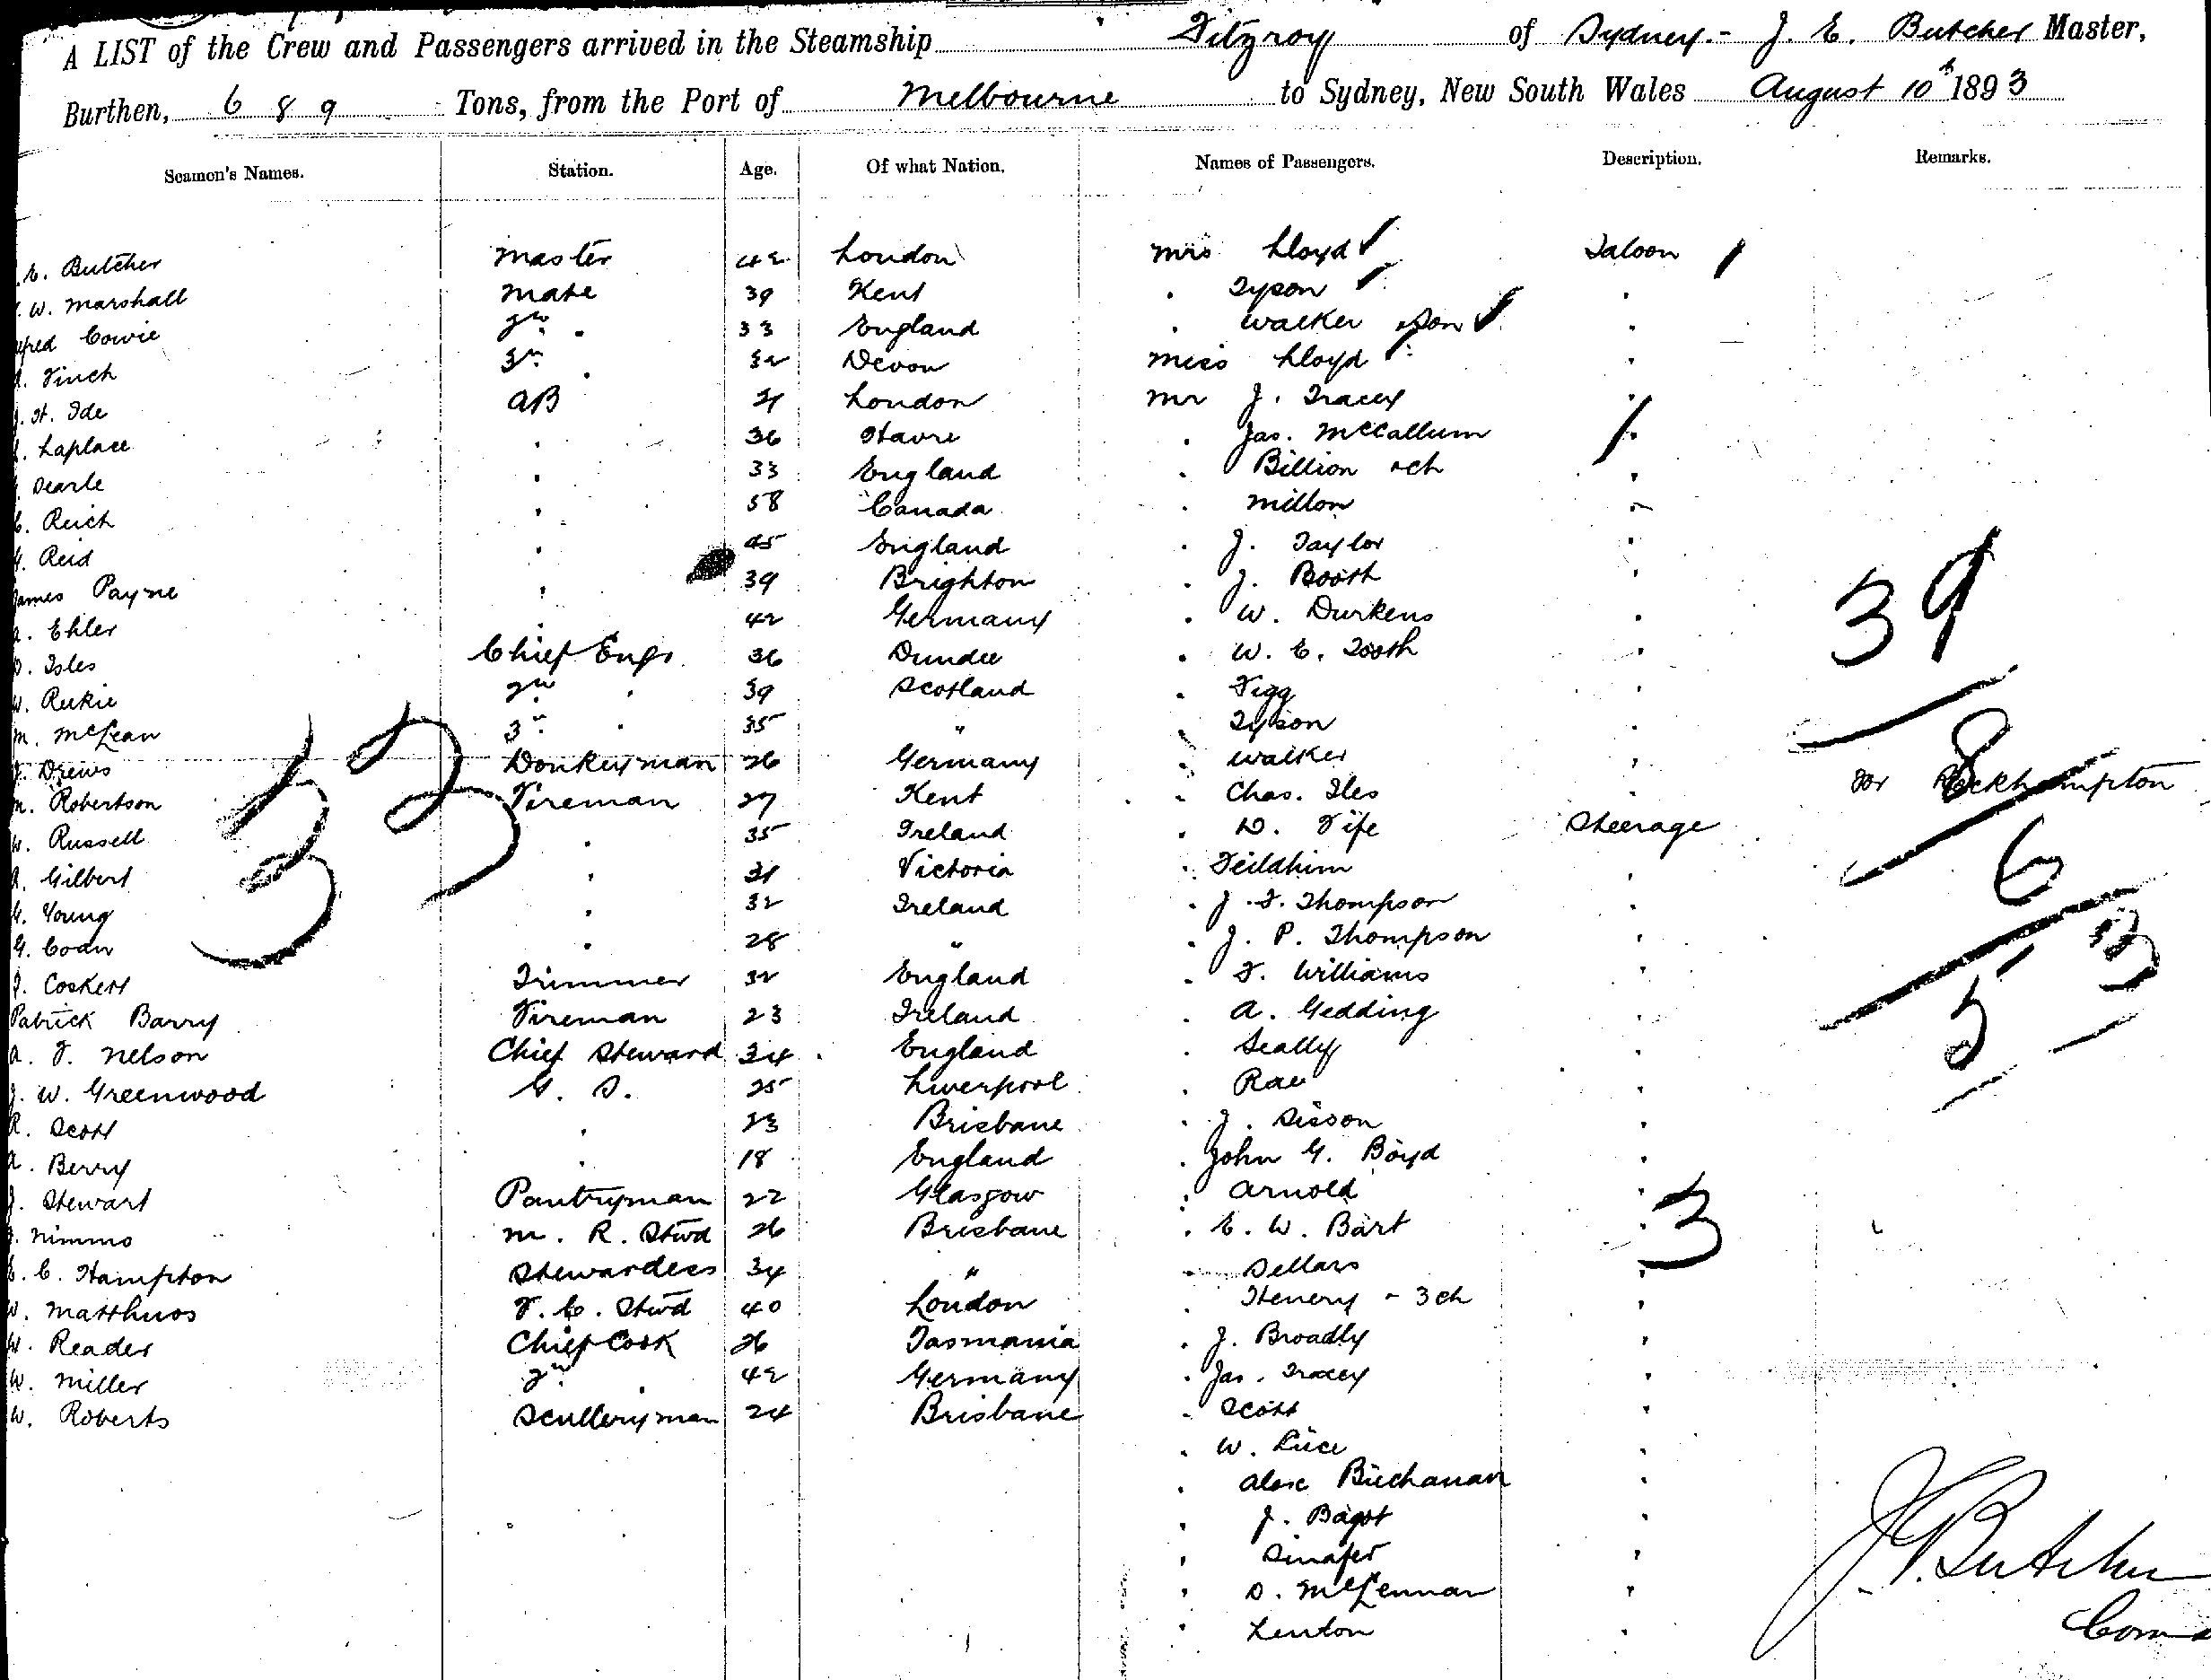 A LIST of the Crew and Passengers arrived in the Steamship Fitzroy of Sydney.- J. E. Butcher Master,
Burthen, 689 Tons, from the Port of Melbourne to Sydney, New South Wales August 10th 1893
Seamen's Names. Station. Age. Of what Nation. Names of Passengers. Description. Remarks.
E. Butcher Master 42 London Mrs Lloyd Saloon
W. Marshall Mate 39 Kent " Tyson "
Cowie 2nd " 33 England " Walker & son "
Finch 3rd " 32 Devon Miss Lloyd "
H. Ide AB London Mr J. Tracey "
Laplace " 36 Havre " Jas. McCallum "
Searle " 33 England " Billion & ch "
C. Reich " 58 Canada " Millon "
Reid " 45 England " J. Taylor "
James Payne " 39 Brighton " J. Booth "
A. Ehler " 42 Germany " W. Durkens "
Isles Chief Engr. 36 Dundee " W. E. Tooth "
W. Reekie 2nd " 39 Scotland " Figg "
M. McLean 3rd " 35 " " Tyson "
J. Drews Donkeyman 26 Germany " Walker "
M. Robertson Fireman 27 Kent " Chas. Iles " For Rockhampton
W. Russell " 35 Ireland " D. Fife Steerage
A. Gilbert " Victoria " "
Young " 32 Ireland " J. F. Thompson "
G. Coan " 28 " " J. P. Thompson "
Trimmer 32 England " F. Williams "
Patrick Barry Fireman 23 Ireland " A. Gedding "
A. F. Nelson Chief Steward 34 England " Scally "
J. W. Greenwood G. S. 25 Liverpool " Rae "
R. Scott " 23 Brisbane " J. Sisson "
A. Berry " 18 England " John G. Boyd "
J. Stewart Pantryman 22 Glasgow " Arnold "
Nimmo M. R. Stwd 26 Brisbane " E. W. Bart "
E. C. Hampton Stewardess 34 " " Sellars "
W. Matthews F. C. Stwd 40 London " Henery - 3 ch "
W. Reader Chief Cook 26 Tasmania " J. Broadly "
W. Miller 2nd " 42 Germany " Jas. Tracey "
W. Roberts Sculleryman 24 Brisbane " Scott "
" W. Luce "
" Alex Buchanan "
" J. Bagot "
" "
" D. McLennan "
" Lenton "
33
39
8
6
53
3
J. E. Butcher